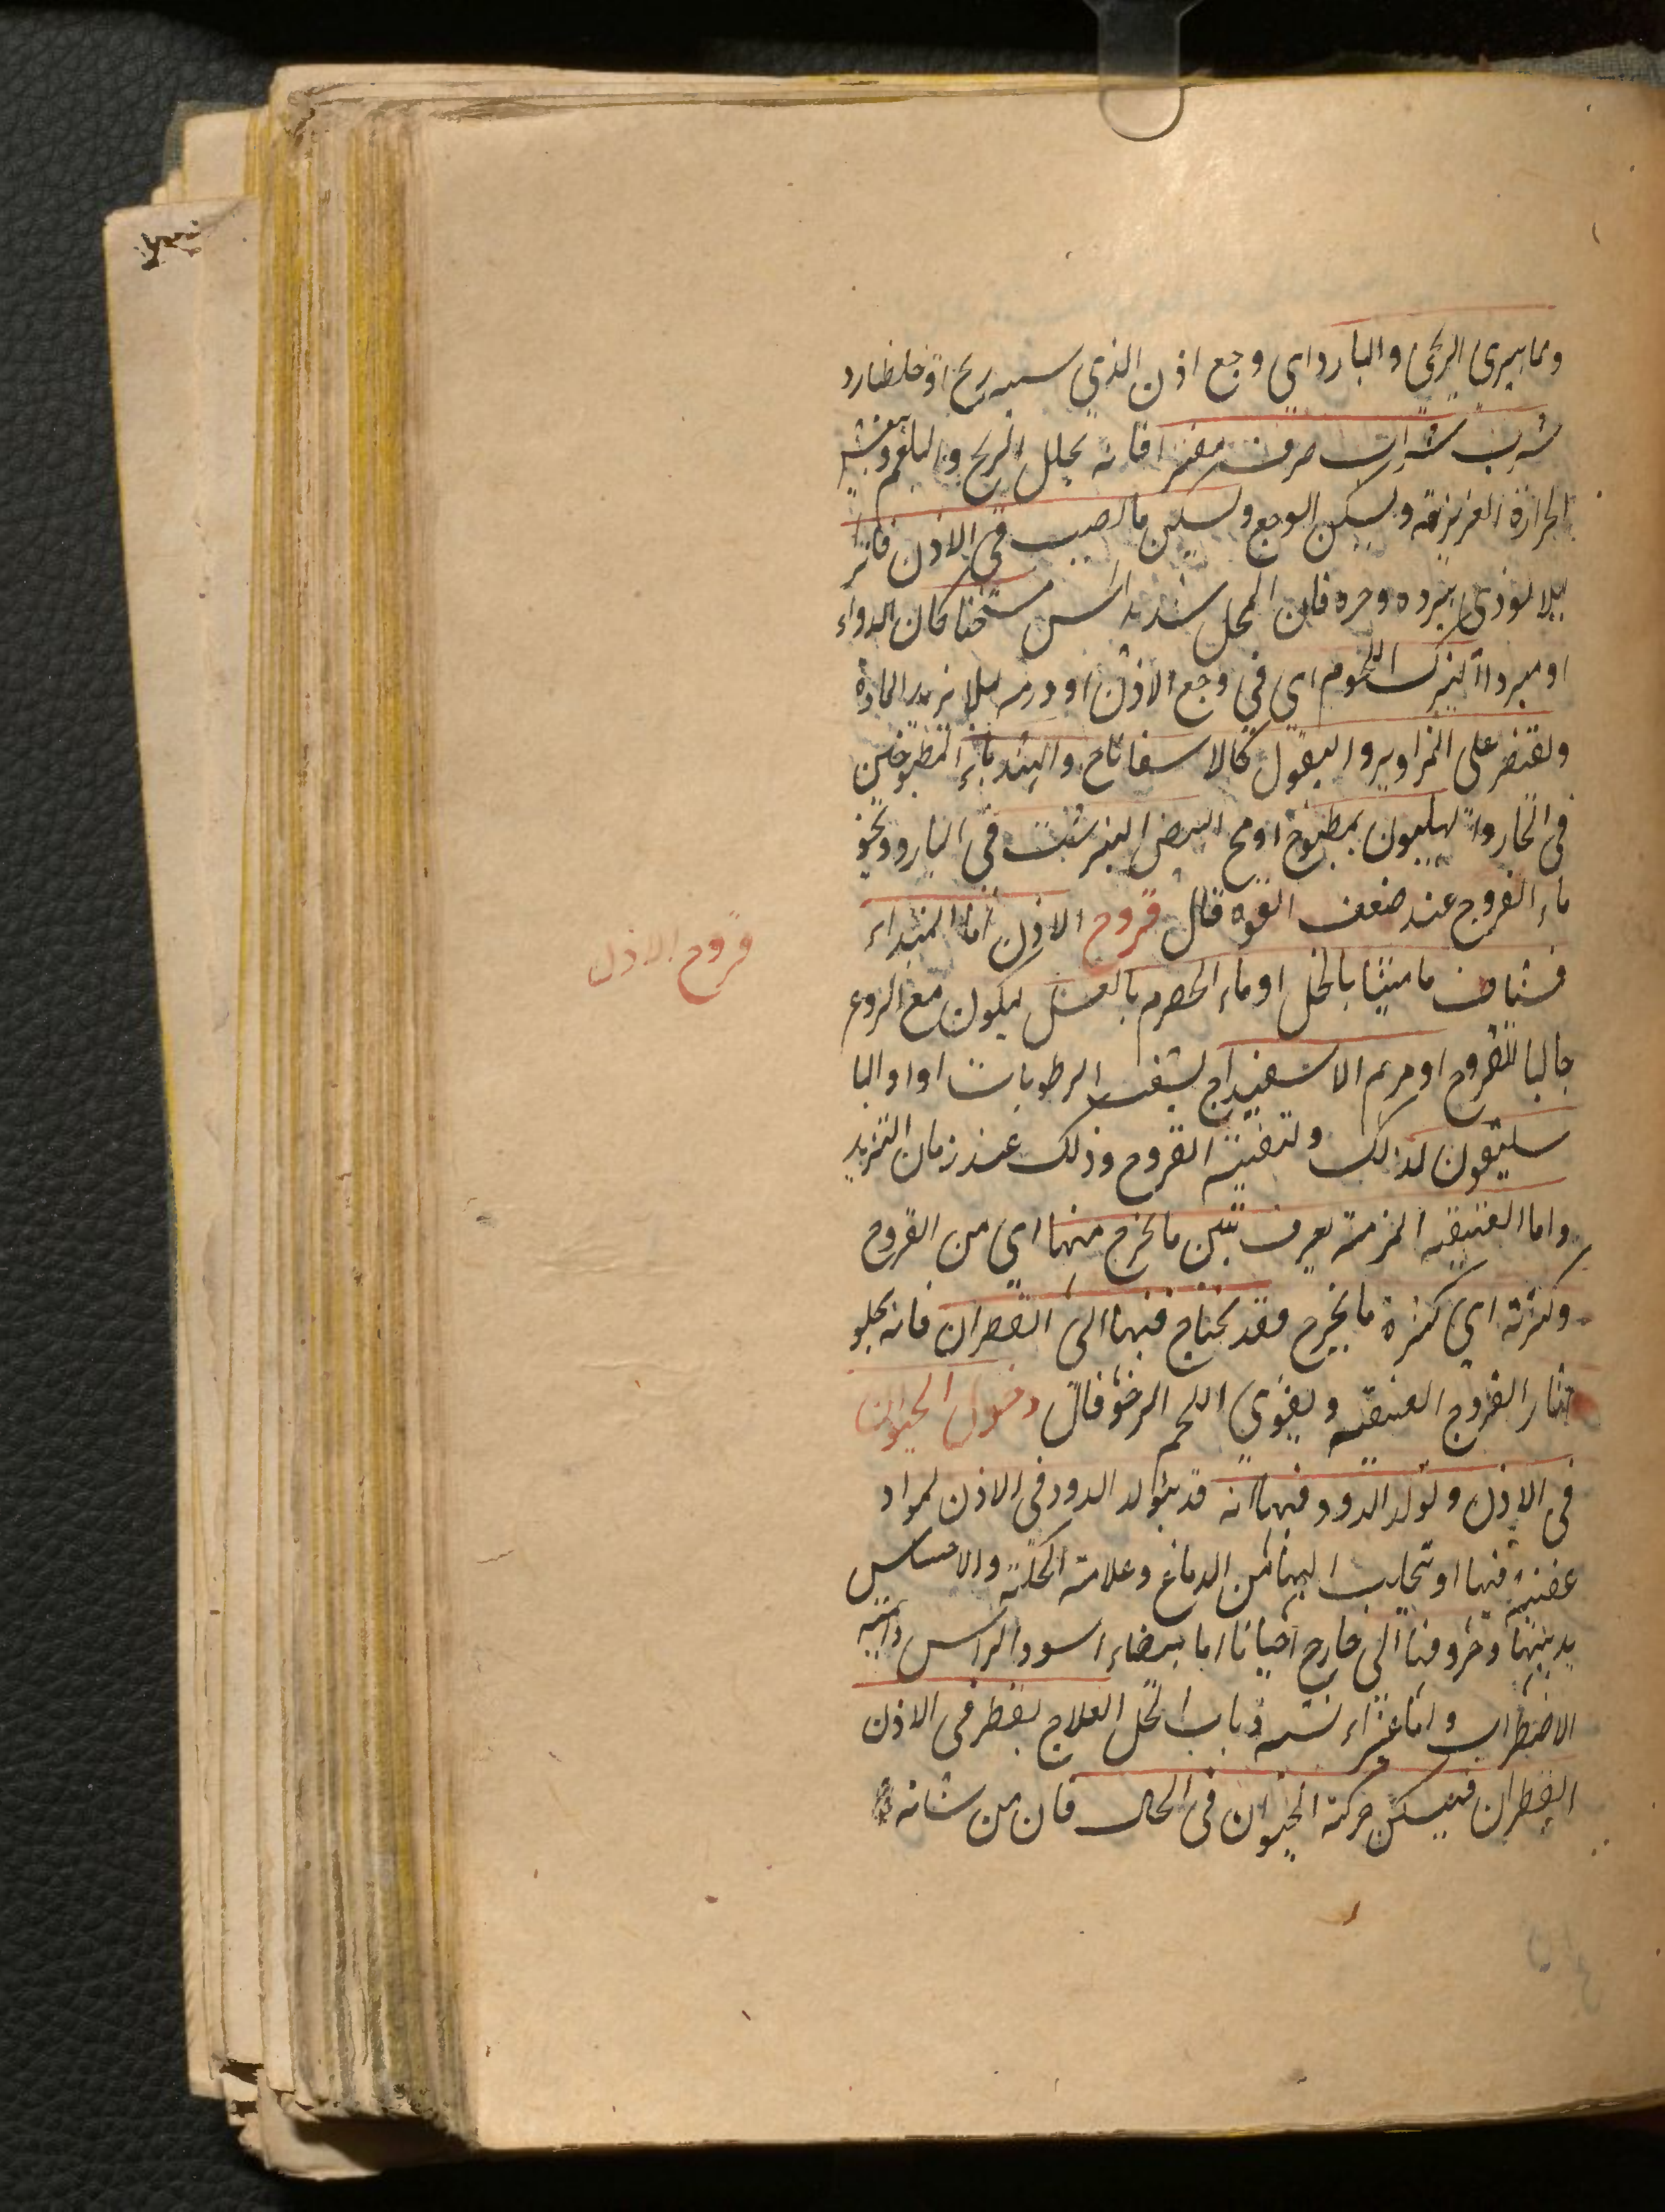 ومما يبرى الريحى والبارد اي وجع اذن الذي سببه ريح او خلط بارد
شرب شراب صرف مفترا فانه يحلل الريح والبلغم وينعش
الحرارة الغريزية ويسكن الوجع وليكن ما يصب في الاذن فاترا
ليلا يوذي ببرده وحره فان المحل شديد الحس مسخنا كان الدواء
او مبردا ويترك اللحوم اي في وجع الاذن او ورمه ليلا تزيد المادة
ويقتصر على المزاوير والبقول كالاسفاناخ والهندباء المطبوخين
في الحار والهليون بمطبوخ او مح البيض النيمرشت في البارد ونحو
ماء الفروج عند ضعف القوة قال قروح الاذن اما المبتداء
فشياف ماميثا بالخل او ماء الحصرم بالعسل ليكون مع الردع
جاليا للقروح او مرهم الاسفيداج لينشف الرطوبات اوا والبا
سليقون لذلك ولتنقية القروح وذلك عند زمان التزيد
واما العتيقه المزمنة يعرف بنتن ما يخرج منها اي من القروح
وكثرته اي كثرة ما يخرج فقد يحتاج فيها الى القطران فانه يجلو
اثار القروح العتيقه ويقوي اللحم الرخو قال دخول الحيوان
في الاذن وتولد الدود فيها انه قد يتولد الدود في الاذن لمواد
عفنية فيها او تحلب اليها من الدماغ وعلامته الحكة والاحساس
بدبيبها وخروجها الى خارج احيانا اما بيضاء اسود الراس دائمة
الاضطراب واما غبراء تشبه ذباب النحل العلاج يقطر في الاذن
القطران فيسكن حركة الحيوان في الحال فان من شانه
قروح الاذن